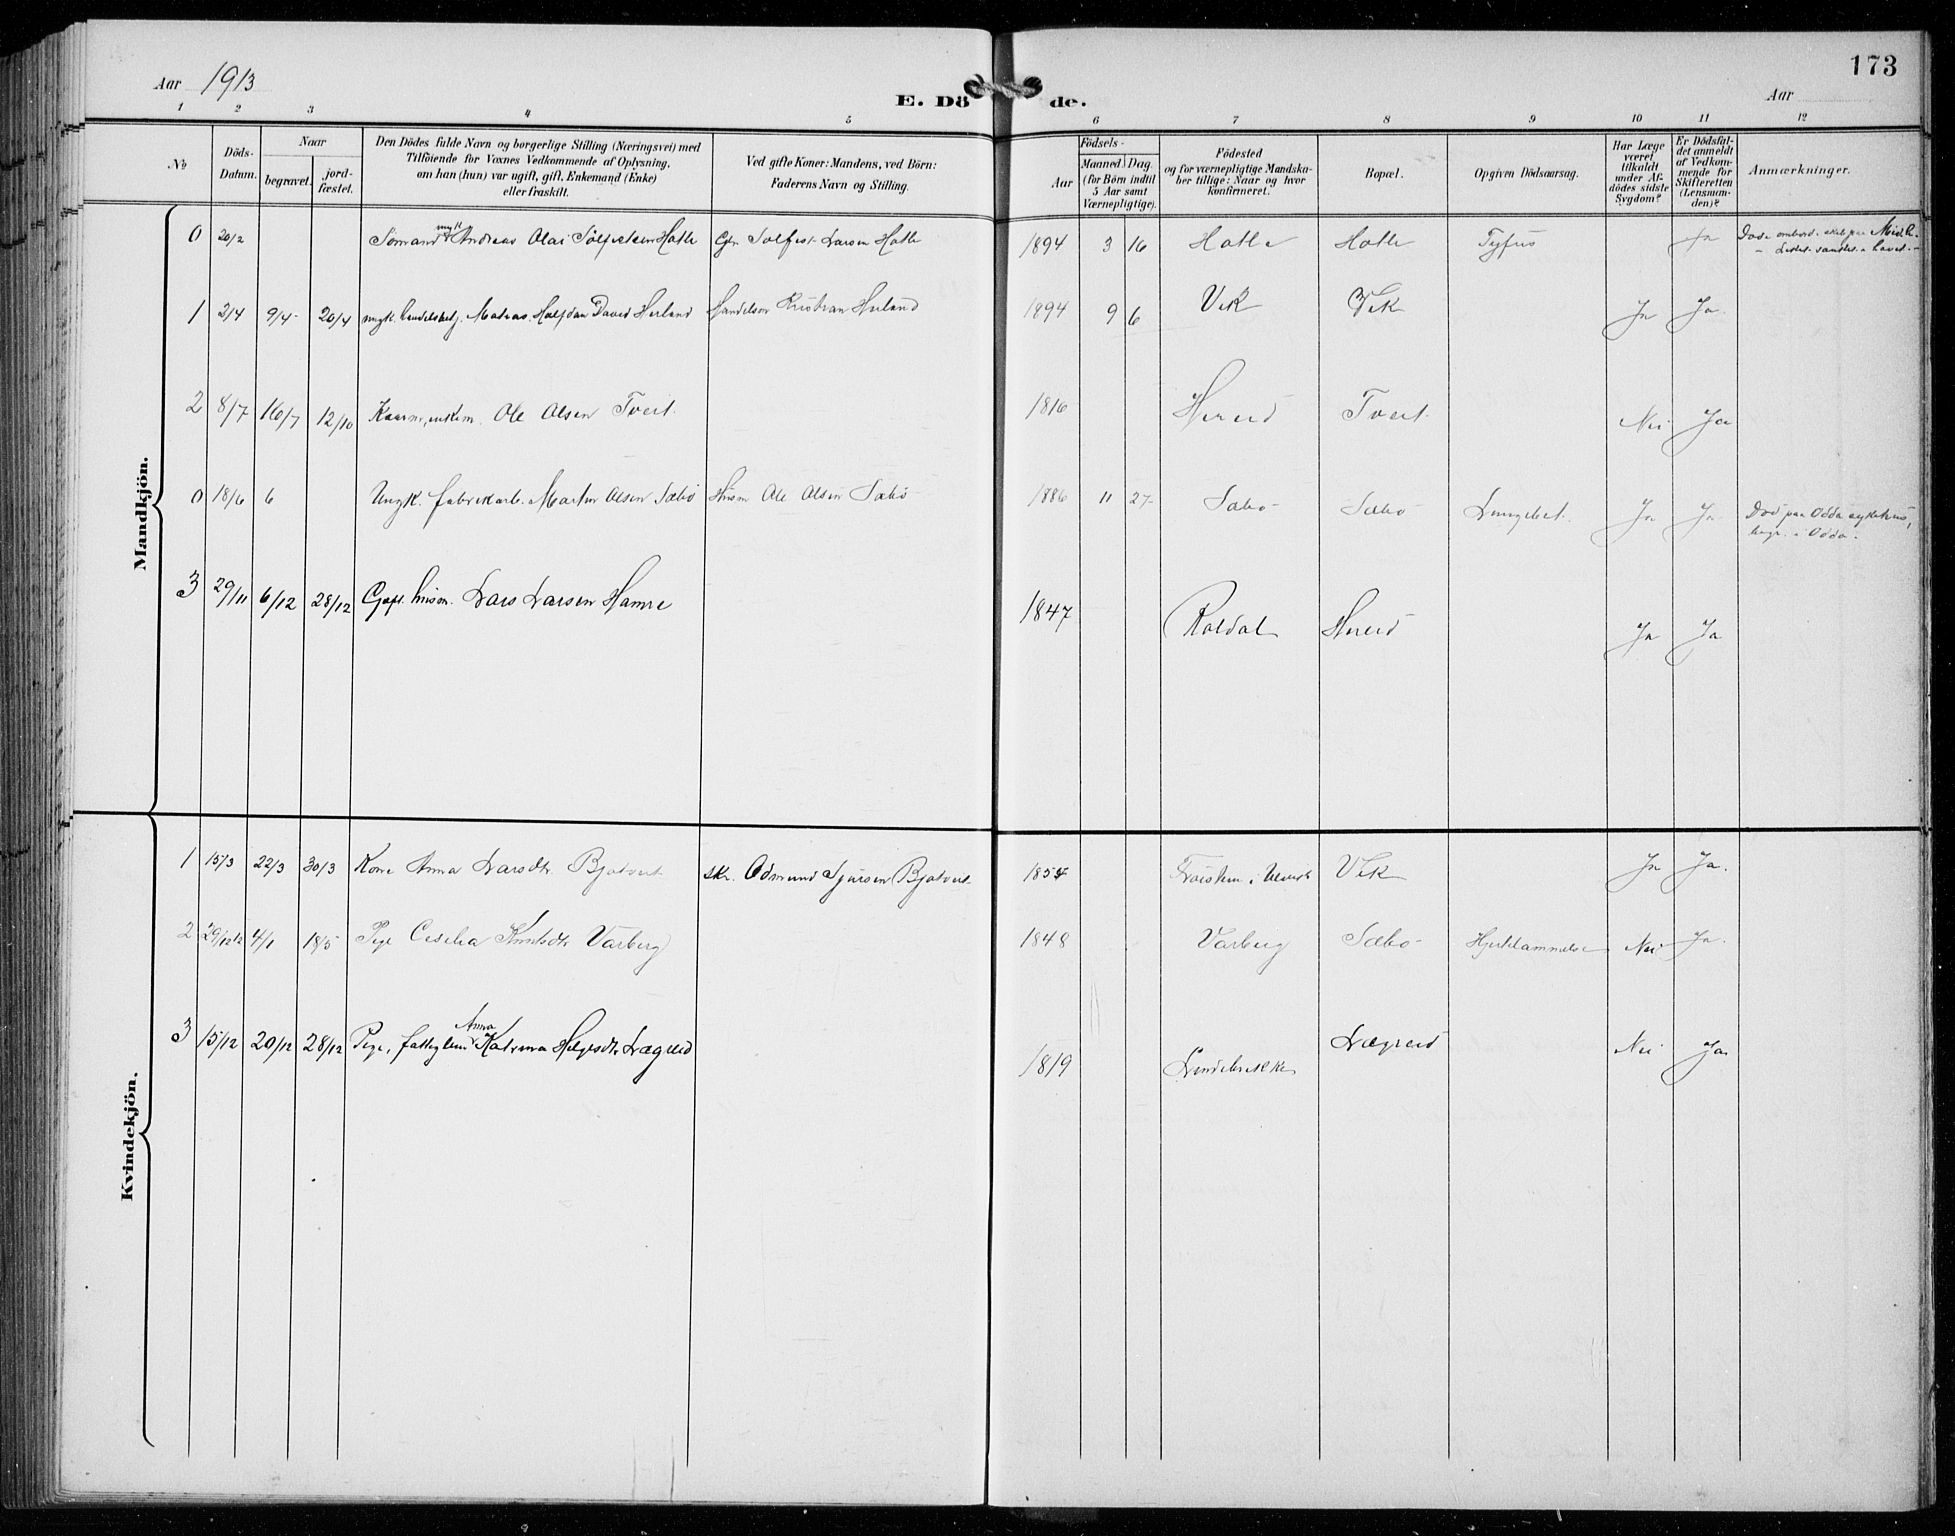 173
Aar 1913
E. Dö de.
Aar
1 2 3 4 5 6 7 8 9 10 11 12
No
Döds-Datum.
Naar
begravet.
jord-fæstet.
Den Dödes fulde Navn og borgerlige Stilling (Næringsvei) med
Tilföiende for Voxnes Vedkommende af Oplysning,
om han (hun) var ugift, gift, Enkemand (Enke)
eller fraskilt.
Ved gifte Koner: Mandens, ved Börn:
Faderens Navn og Stilling.
Födsels-
Aar
Maaned. Dag.
(for Börn indtil
5 Aar samt
Værnepligtige).
Födested
og for værnepligtige Mandska-
ber tillige: Naar og hvor
konfirmeret.
Bopæl.
Opgiven Dödsaarsag.
Har Læge
været
tilkaldt
under Af-
dödes sidste
Sygdom?
Er Dödsfal-
det anmeldt
af Vedkom-
mende for
Skifteretten
(Lensman-
den)?
Anmærkninger.
Mandkjön.
0 20/2 Sömand ungk. Andreas Olai Solfestsen Hotle Solfest Larsen Hotle 1894 3 16 Hotle Hotle Tyfus Ja
1 2/4 9/4 20/4 ungk. Matias Halfdan David Herland Kristian Herland 1894 9 6 Vik Vik Ja Ja.
2 8/7 16/7 12/10 Kaarm, enkem. Ole Olsen Tveit. 1816 Hereid Tveit. Nei Ja
0 18/6 6 Ungk. fabrikarb. Martin Olsen Sæbö Husm Ole Olsen Sæbö 1886 11 27 Sæbö Sæbö Ja Ja Död paa Odda sykehus,
begr. i Odda.
3 29/11 6/12 28/12 Gift husm. Lars Larsen Hamre 1847 Roldal Hereid Ja Ja
Kvindekjön.
1 15/3 22/3 30/3 Kone Anna Larsdtr. Bjotveit Odmund Sjursen Bjotveit 1854 i Ulvik Vik Ja Ja.
2 29/12 12 4/1 18/5 Pige Cesilia Knutsdtr Varberg 1848 Varberg Sæbö Hjertelammelse Nei Ja.
3 15/12 20/12 28/12 Pige, fattiglem Anna Katrina Helgesdtr Lægreid 1819 Lindebrekke Lægreid Nei Ja